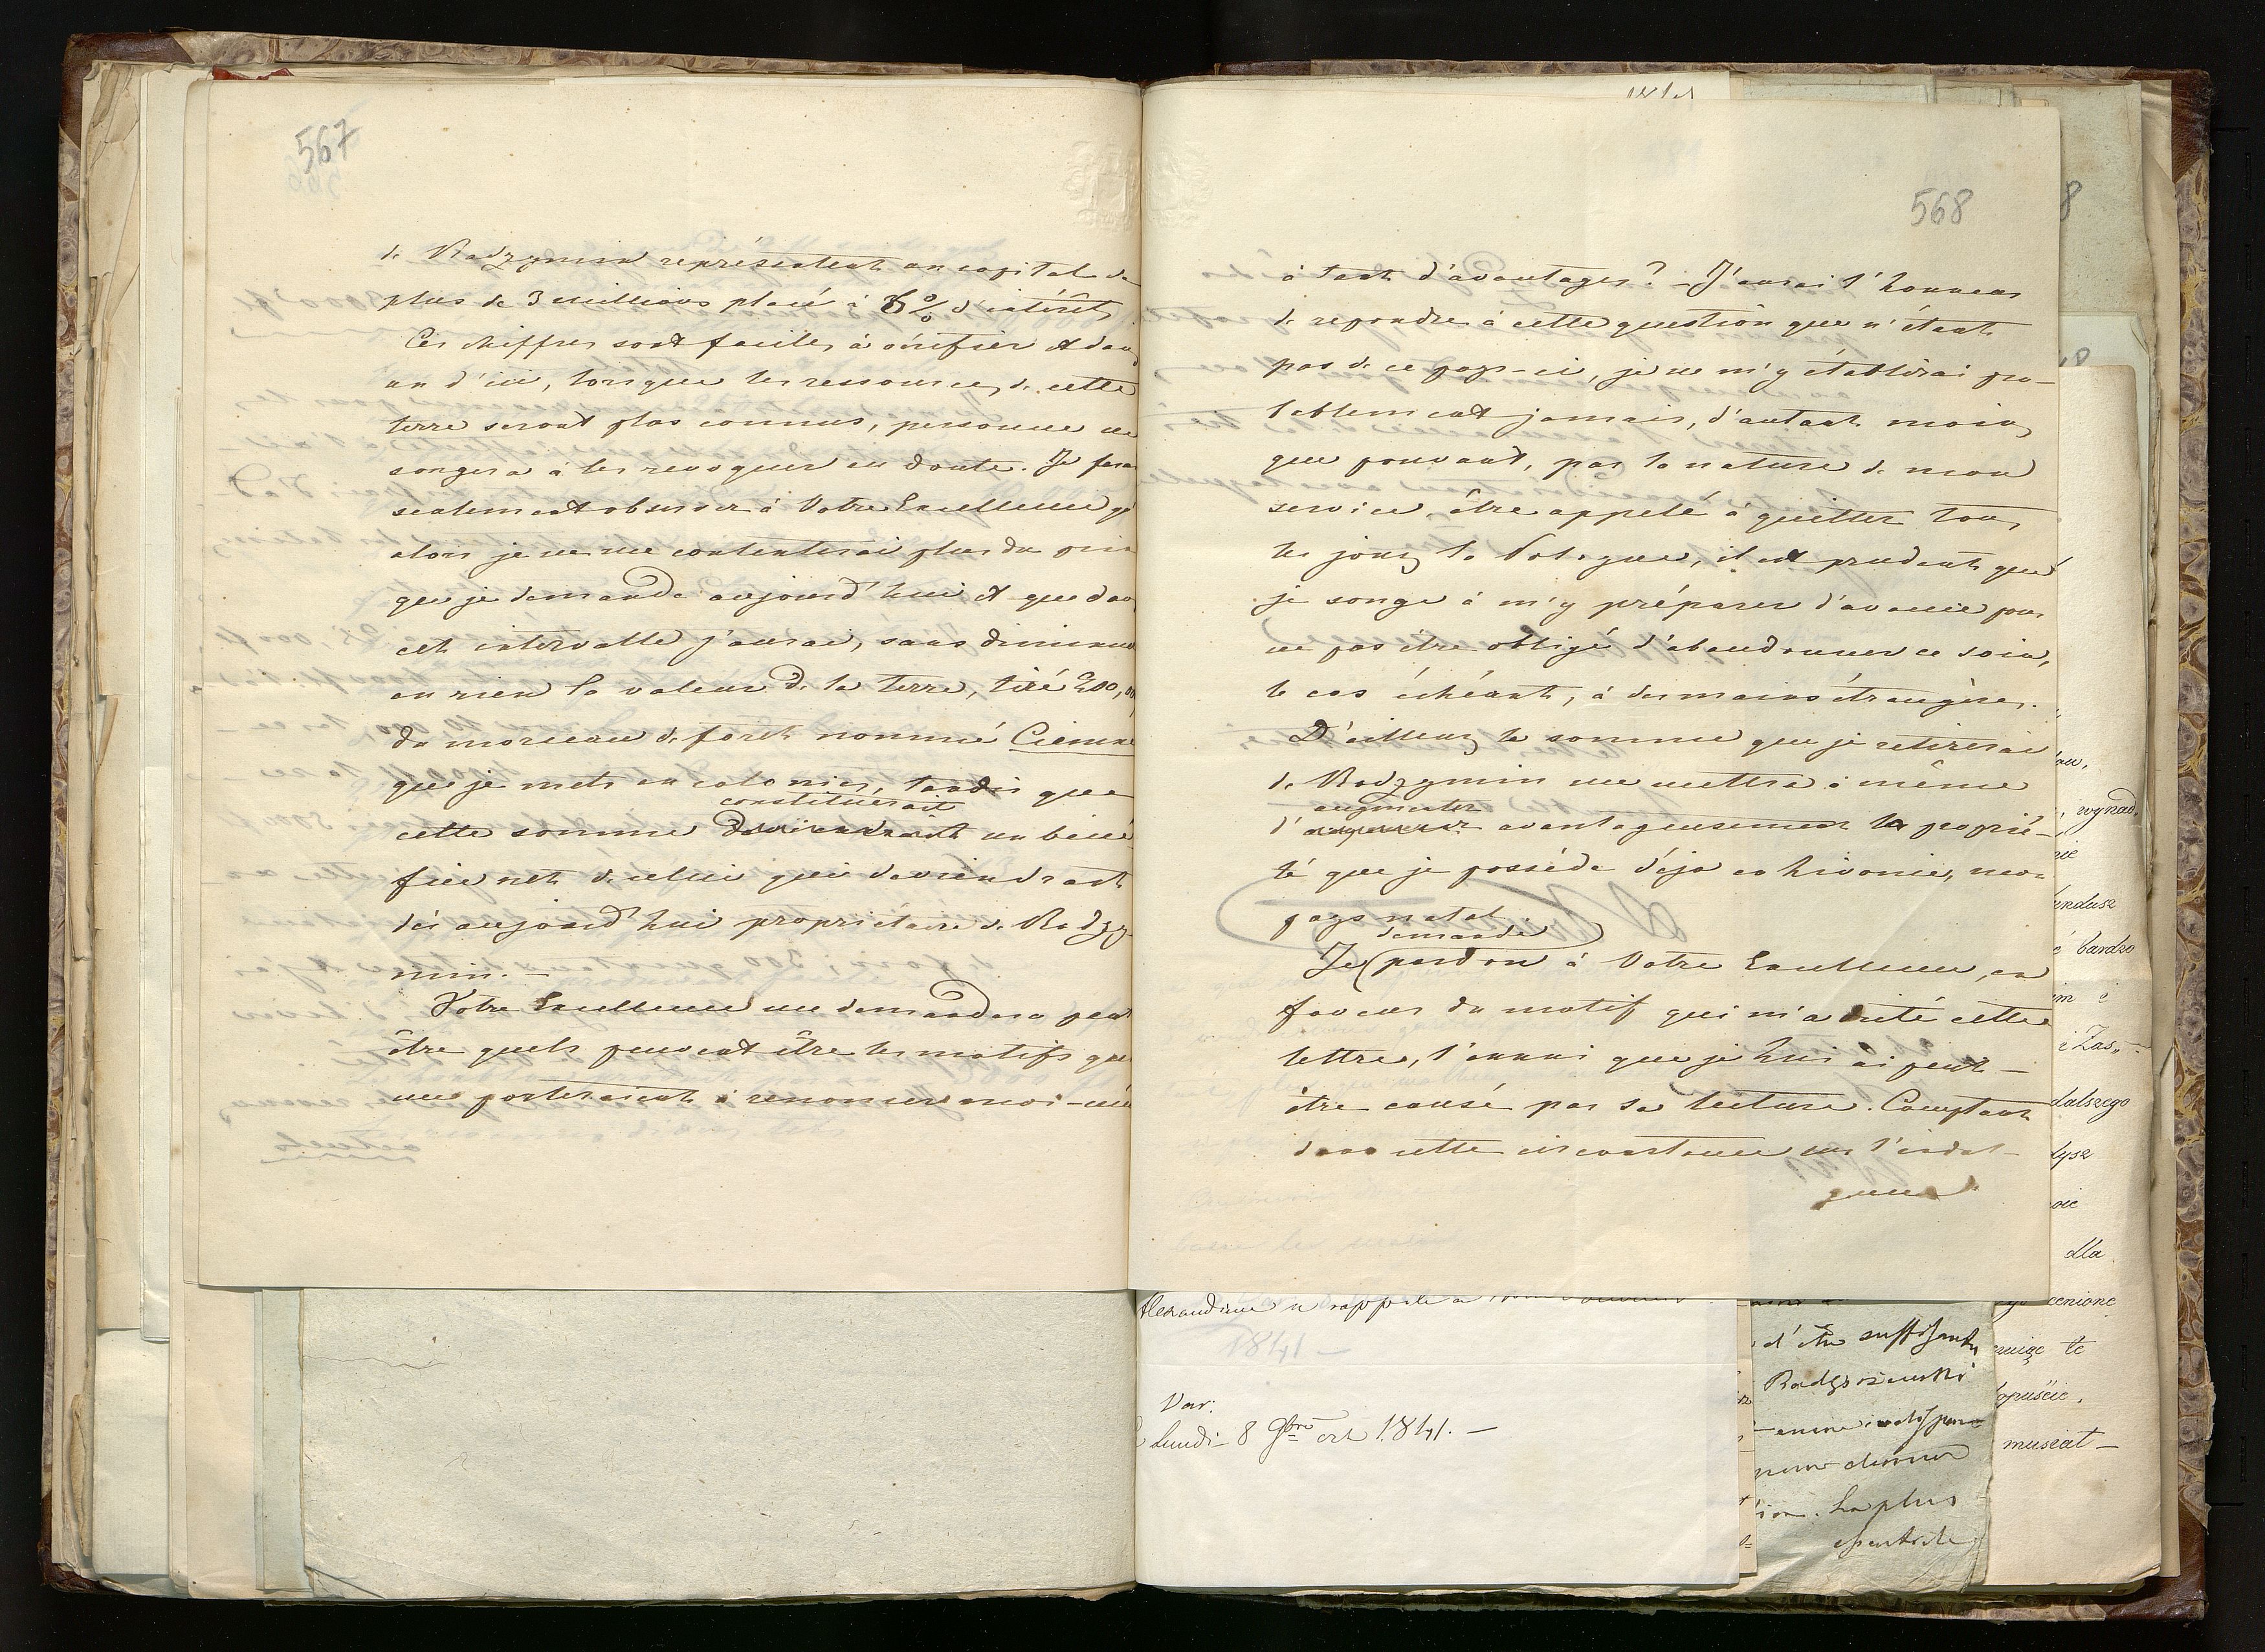 567
de Radzymin représentent un capital de
plus de 3 millions placé à 6% d'intérêt
Ces chiffres sont faciles à vérifier et dans
un d'ici, lorsque les ressources de cette
terre seront plus connus, personne ne
songera à les revoquer en doute. Je ferai
seulement observer à Votre Excellence
alors je ne me contenterai plus du prix
que je demande aujourd'hui et que dans
cet intervalle j'aurai, sans diminuer
en rien la valeur de la terre, tiré 200,00
du morceau de forêt nommé Ciemne
que je mets en colonies, tandis que
constituerait
cette somme deviendrait un béné
fice net de celui qui deviendrait
dès aujourd'hui propriétaire de Radzy-
min. —
Votre Excellence me demandera peut
être quels peuvent être les motifs qui
me porteraient à renoncer moi-mê
568
à tant d'avantages? — J'aurai l'honneur
de repondre à cette question que n'étant
pas de ce pays-ci, je ne m'y établirai pro-
bablement jamais, d'autant moins
que pouvant, par la nature de mon
service, être appelé à quitter tous
les jours la Pologne, il est prudent que
je songe à m'y préparer d'avance pour
ne pas être obligé d'abandonner ce soin,
le cas échéant, à des mains étrangères.
D'ailleurs la somme que je retirerai
de Radzymin me mettra à même
augmenter
d' avantageusement la proprié-
té que je possède déja en Livonie, mon
pays natal.
demande
Je pardon à Votre Excellence, en
faveur du motif qui m'a dicté cette
lettre, l'ennui que je lui ai peut-
être causé par sa lecture. Comptant
dans cette circonstance sur l'indul-
gence
Alexandrine se rappele a
1841. —
Var:
Lundi — 8 9bre 1841. —
d'être suffisante
Radziszewski
donner
. La plus
wynad.
nie
fundusz
bardzo
im i
i Zas„
dalszego
dysz
oie
dla
cenione
te
opuście,
musiat —